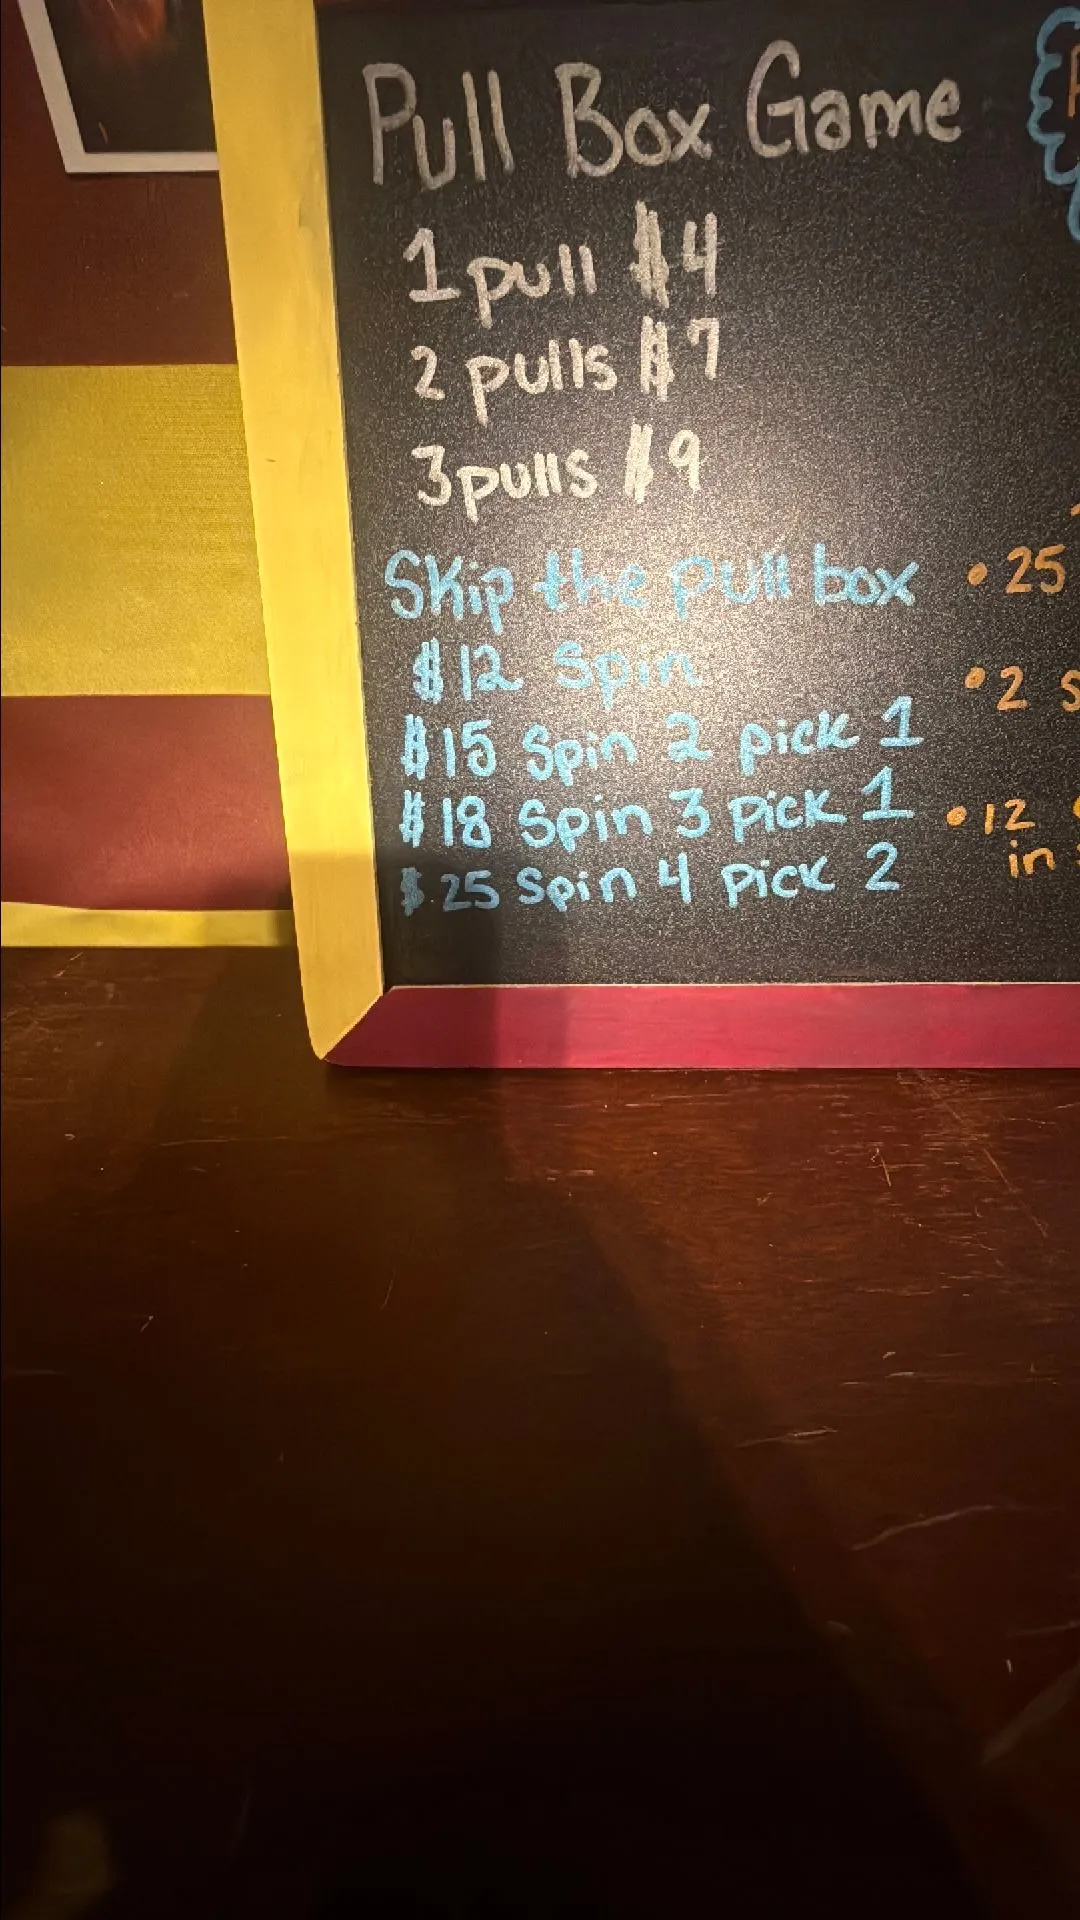 Pull Box Game
1 pull $4
2 pulls $7
3 pulls $9
Skip the pull box
$12 Spin
$15 Spin 2 pick 1
$18 Spin 3 pick 1
$25 Spin 4 pick 2
• 25
• 2
• 12
in